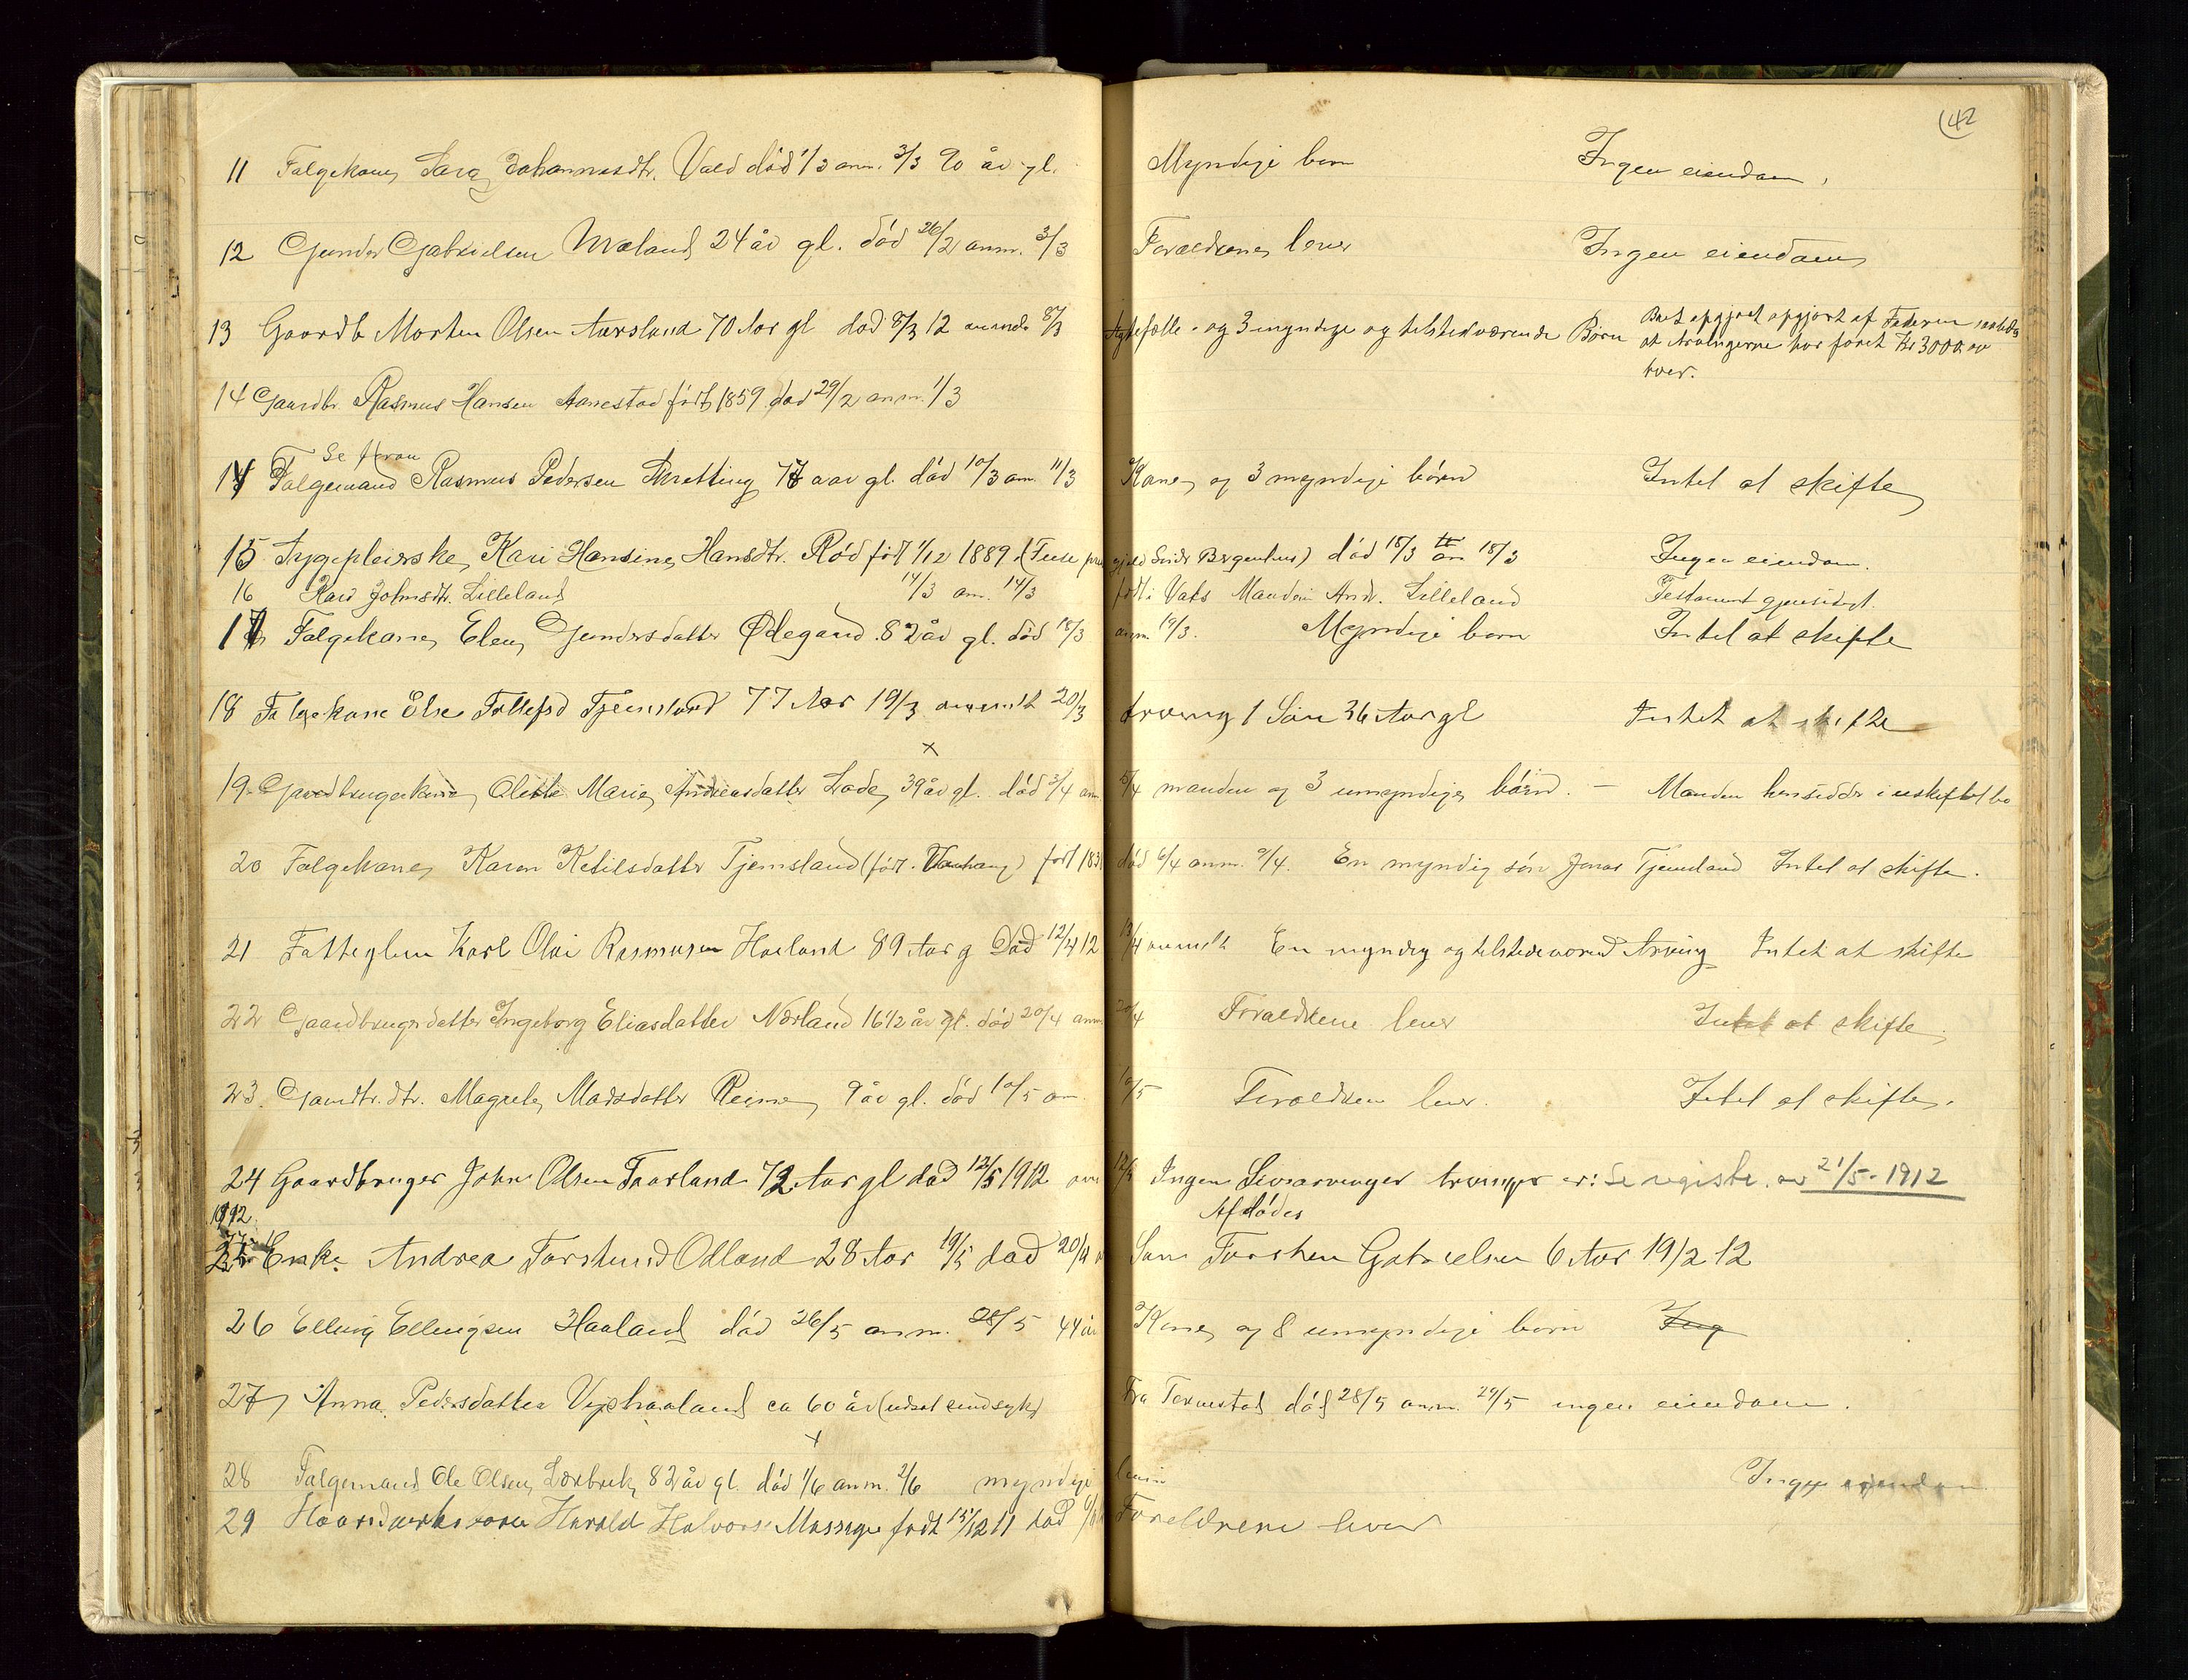 42
11 Folgekone Sara Johannesdtr. Vold død 1/3 anm. 3/3 90 år gl. Myndige børn Ingen eiendom.
12 Gunder Gabrielsen 24 år gl. død 26/2 anm. 3/3 Forældrene lever Ingen eiendom
13 Gaardb Morten Olsen Aarsland 70 Aar gl død 8/3 12 anmeldt 8/3 Ægtefælle og 3 myndige og tilstedværende Børn opgjort af
at Arvingerne har faaet Kr 3000
hver.
14 Gaardbr. Rasmus Hansen Aanestad født 1859 død 29/2 anm. 1/3
Se foran
14 Folgemand Rasmus Pedersen Skretting aar gl. død 10/3 am. 11/3 Kone og 3 myndige børn Intet at skifte
15 Sygepleierske Kari Hansine Hansdtr. Rød født 1/12 1889 i (Fuse Søndr Bergenhus) død 18/3 an 18/3 Ingen eiendom.
16 Kari Johnsdtr. Lilleland 14/3 am. 14/3 født i Vats Manden Andr. Lilleland Testament gjensidigt.
17 Folgekone Elen Gundersdatter Ødegaard 82 år gl. død 18/3 anm. 19/3. Myndige børn Intet at skifte
18 Folgekone Else Tollefsd Tjemsland 77 Aar 19/3 anmeldt 20/3 Arving 1 Søn 36 Aar gl Intet at skifte
x
19 Gaardbrugerkone Marie Andreasdatter Lode 39 år gl. død 3/4 anm 5/4 manden og 3 umyndige børn. – Manden hensidder i uskiftet bo
20 Folgekone Karen Ketilsdatter Tjemsland (født Varhaug) født død 6/4 anm. 9/4. En myndig søn Jonas Tjemsland Intet at skifte.
21 Fattiglem Karl Olai Rasmusen Haaland 89 Aar g Død 12/4 12 13/4 anmelt En myndig og tilstedeværend Arving Intet at skifte
22 Gaardbrugerdatter Ingeborg Eliasdatter Nærland 16 1/2 år gl. død 20/4 anm 20/4 Forældrene lever Intet at skifte.
23. Gaardbr. dtr. Magrete Madsdatter Reime 9 år gl. død 10/5 an 10/5 Forældrene lever. Intet at skifte.
24 Gaardbruger John Olsen Taarland 72 Aar gl død 12/5 1912 12/5 Ingen Livsarvinger Arvinger er: Se registr. av 21/5 - 1912
1912 Afdødes
25 Enke Andrea Torstensd Odland 28 Aar 19/5 død Søn Torsten Gabrielsen 6 Aar 19/2 12
26 Elling Ellingsen Haaland død 26/5 anm. 28/5 44 år Kone og 8 umyndige børn Ing
27 Anna Pedersdatter Vigshaaland ca 60 år (udsat sindsyk) Fra død 28/5 anm. 29/5 ingen eiendom.
x
28 Folgemand Ole Olsen Lærbrek 82 år gl. død 1/6 anm. 2/6 myndige børn Ingen eiendom
29 Harald Halvors. født 15/12 11 død Forældrene lever